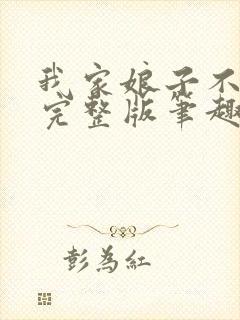 我家娘子不
完整版筆趣
彭為紅